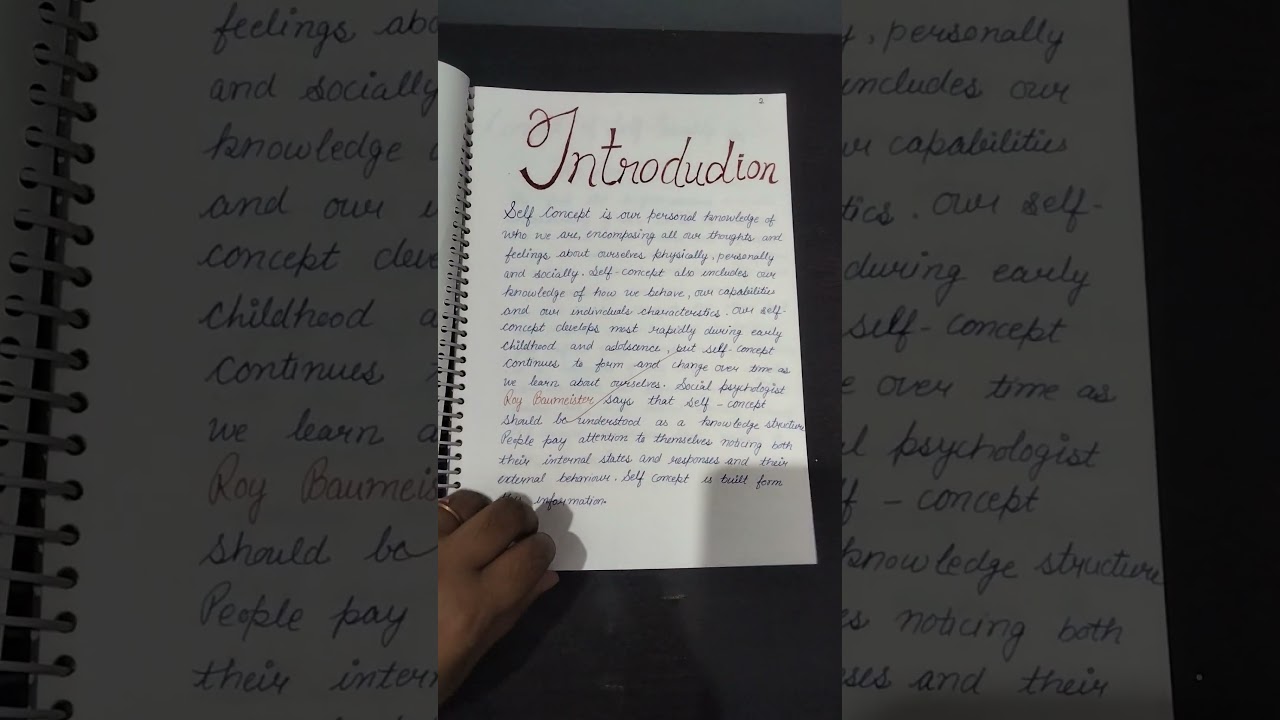 2
Introdudion
Self Concept is our personal knowledge of
who we are, encompasing all our thoughts and
feelings about ourselves physically, personally
and socially. Self-concept also includes our
knowledge of how we behave, our capabilities
and our individuals characteristics. Our self-
concept develops most rapidly during early
childhood and adolsance, but self-concept
continues to form and change over time as
we learn about ourselves. Social psychologist
Roy Baumeister says that self-concept
should be understood as a knowledge structure
People pay attention to themselves noticing both
their internal states and responses and their
external behaviour. Self Concept is built form
this information.